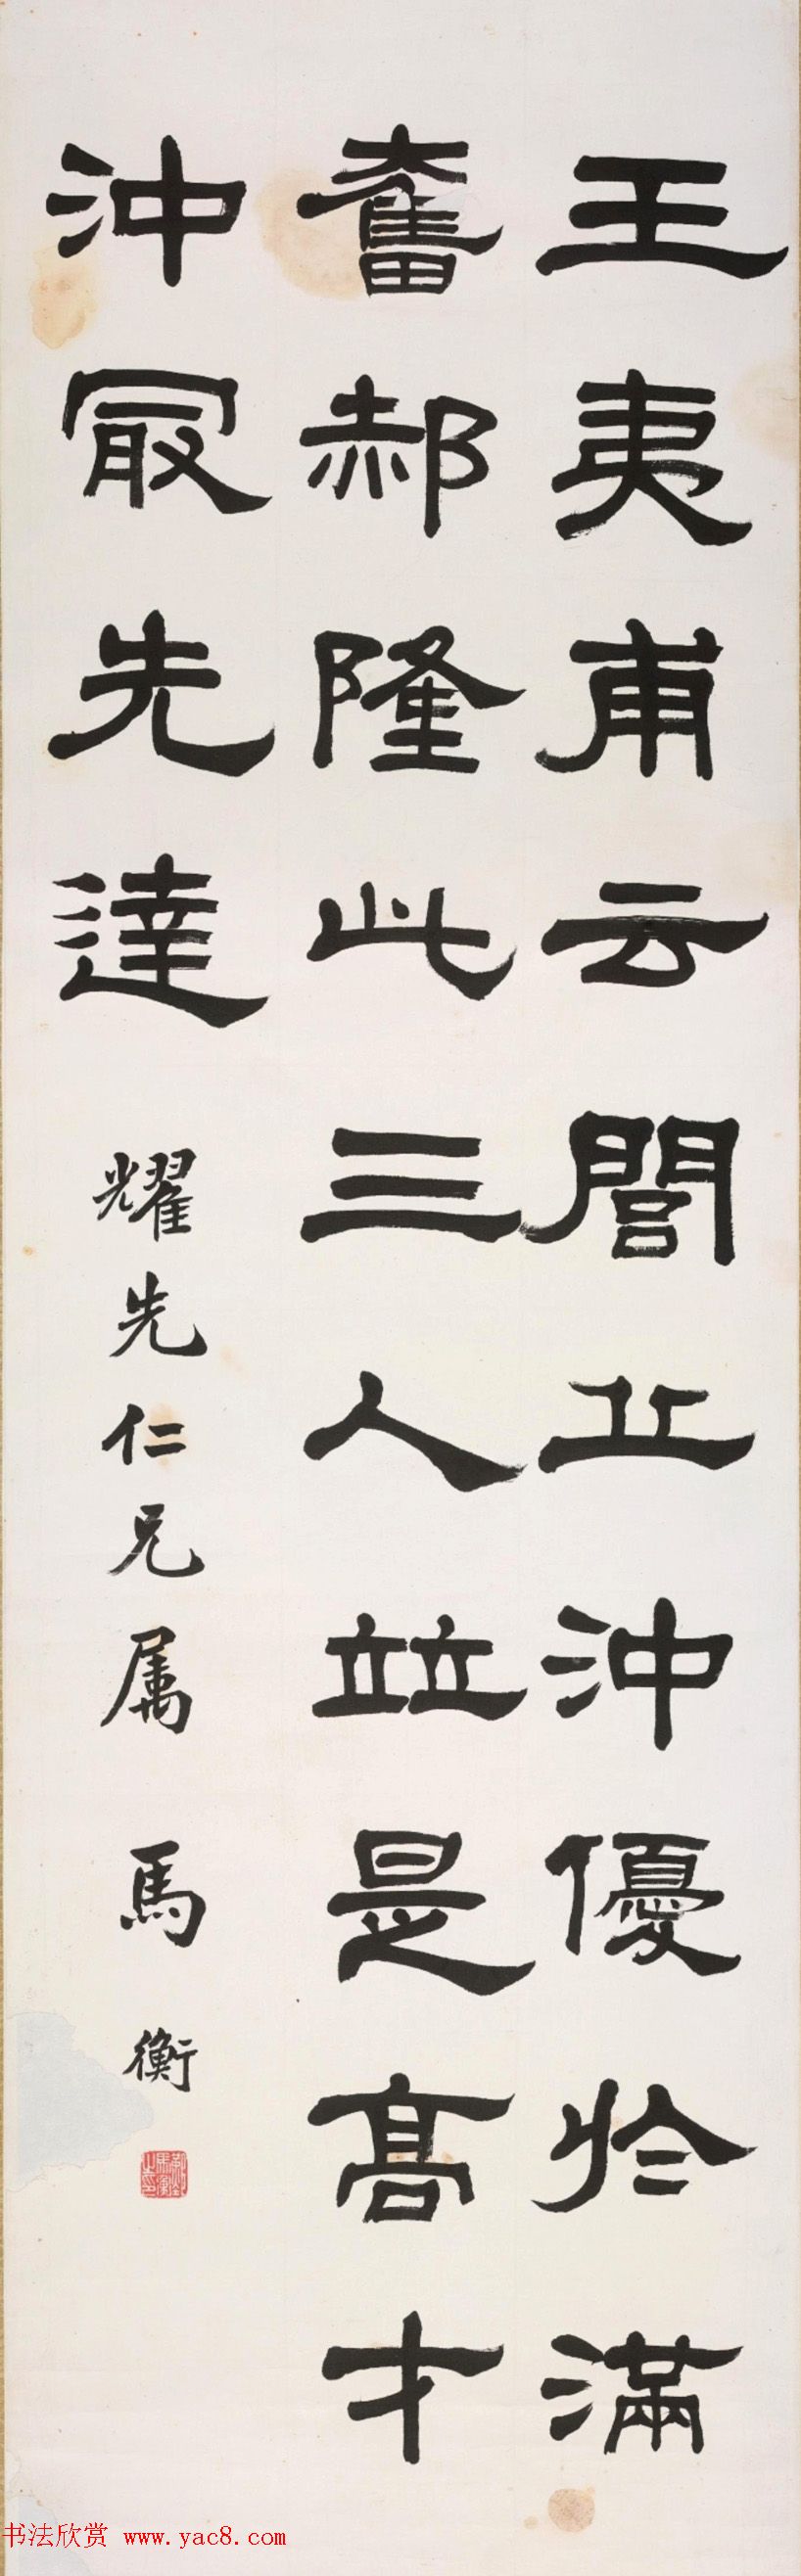 王夷甫云閭丘沖優於滿
奮郝隆此三人竝是高才
沖冣先達
耀先仁兄属 馬衡
书法欣赏 www.yac8.com